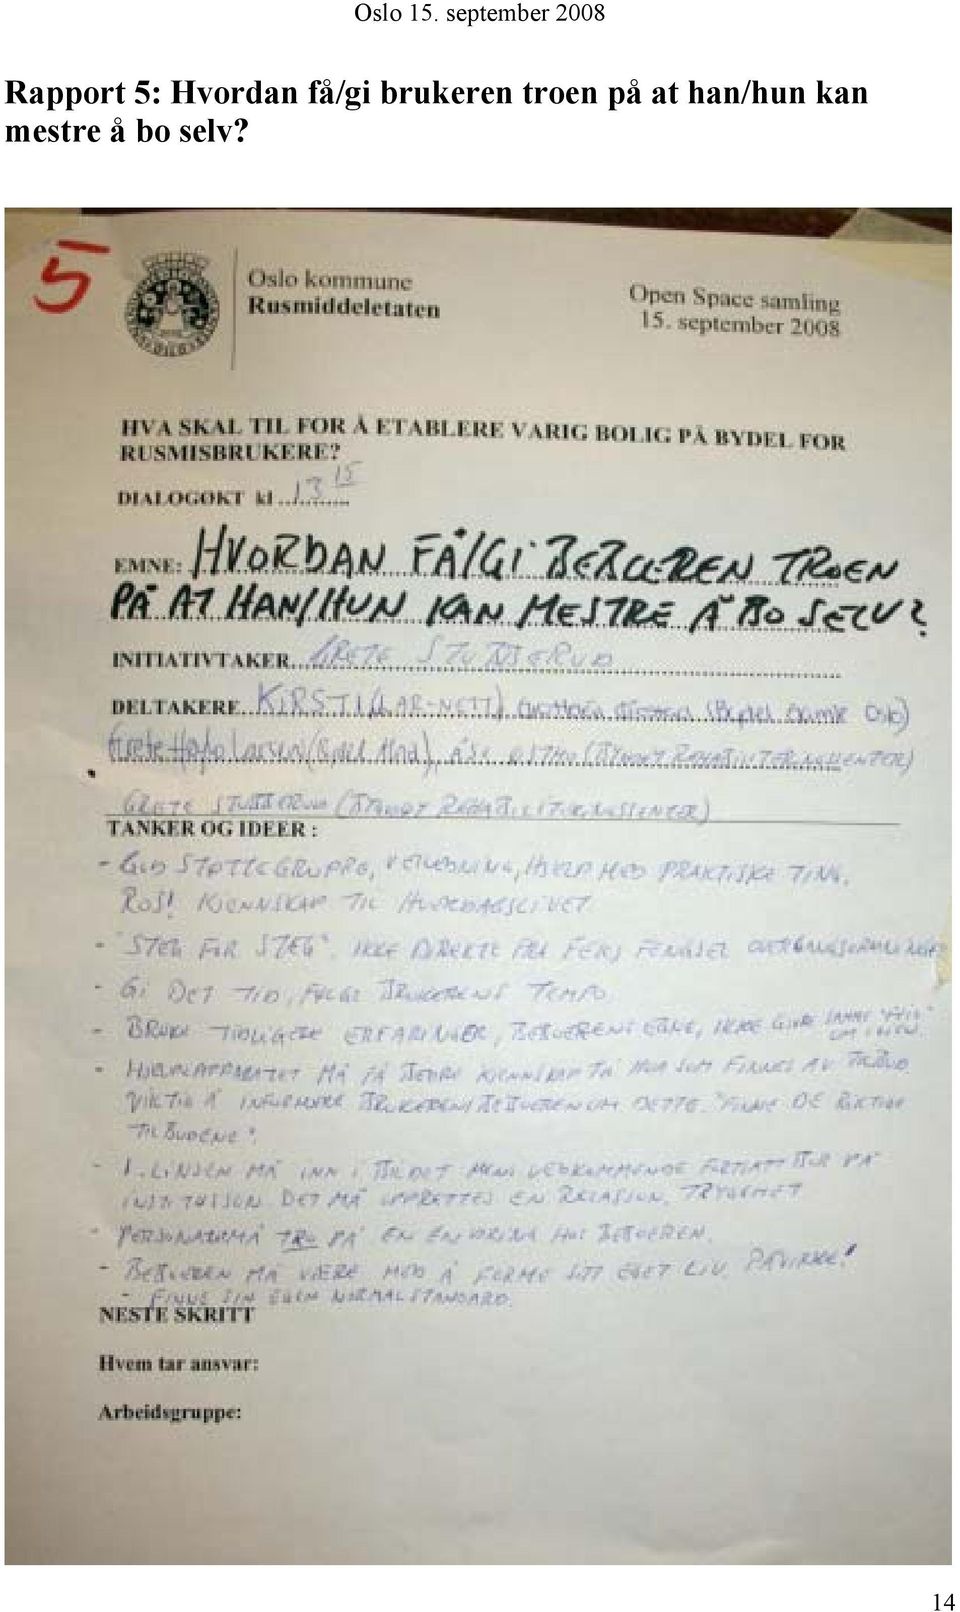 Oslo 15. september 2008
Rapport 5: Hvordan få/gi brukeren troen på at han/hun kan
mestre å bo selv?
5
Oslo kommune
Rusmiddeletaten
Open Space samling
15. september 2008
HVA SKAL TIL FOR Å ETABLERE VARIG BOLIG PÅ BYDEL FOR
RUSMISBRUKERE?
DIALOGØKT kl 13 15
EMNE: HVORDAN FÅ/GI BEBOEREN TROEN
PÅ AT HAN/HUN KAN MESTRE Å BO SELV?
INITIATIVTAKER GRETE STUBBERUD
DELTAKERE KIRSTI (LAR-NETT) (Bydel Gamle Oslo)
Grete Larsen (Bydel Alna), ÅSE
GRETE STUBBERUD
TANKER OG IDEER :
- GOD STØTTEGRUPPE, VEILEDNING, HJELP MED PRAKTISKE TING.
ROS! KJENNSKAP TIL HVERDAGSLIVET.
- "STEG FOR STEG". IKKE DIREKTE FRA FENGSEL
- GI DET TID, FØLGE BRUKERENS TEMPO
- BRUKE TIDLIGERE ERFARINGER, BEBOERENS EGNE, IKKE GJØRE SAMME "FEIL" OM IGJEN.
- HJELPEAPPARATET MÅ FÅ BEDRE KJENNSKAP TIL HVA SOM FINNES AV TILBUD.
VIKTIG Å INFORMERE BRUKEREN/BEBOEREN OM DETTE. "FINNE DE RIKTIGE
TILBUDENE".
- 1. LINJEN MÅ INN I BILDET MENS VEDKOMMENDE FORTSATT BOR PÅ
INSTITUSJON. DET MÅ OPPRETTES EN RELASJON, TRYGGHET
- PERSONALET MÅ TRO PÅ EN ENDRING HOS BEBOEREN.
- BEBOEREN MÅ VÆRE MED Å FORME SITT EGET LIV. PÅVIRKE!
- FINNE SIN EGEN NORMALSTANDARD.
NESTE SKRITT
Hvem tar ansvar:
Arbeidsgruppe:
14